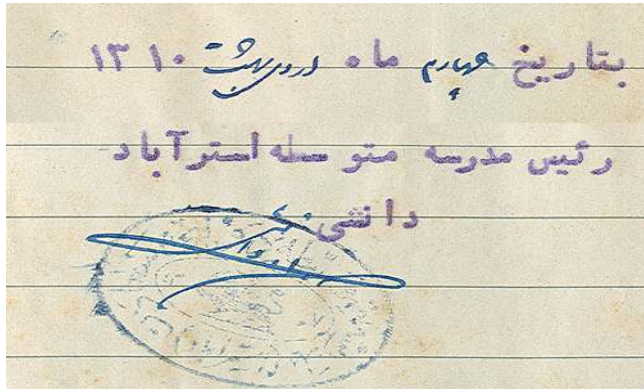 بتاریخ چهارم ماه اردیبهشت ۱۳۱۰
رئیس مدرسه متوسطه استرآباد
دانشی